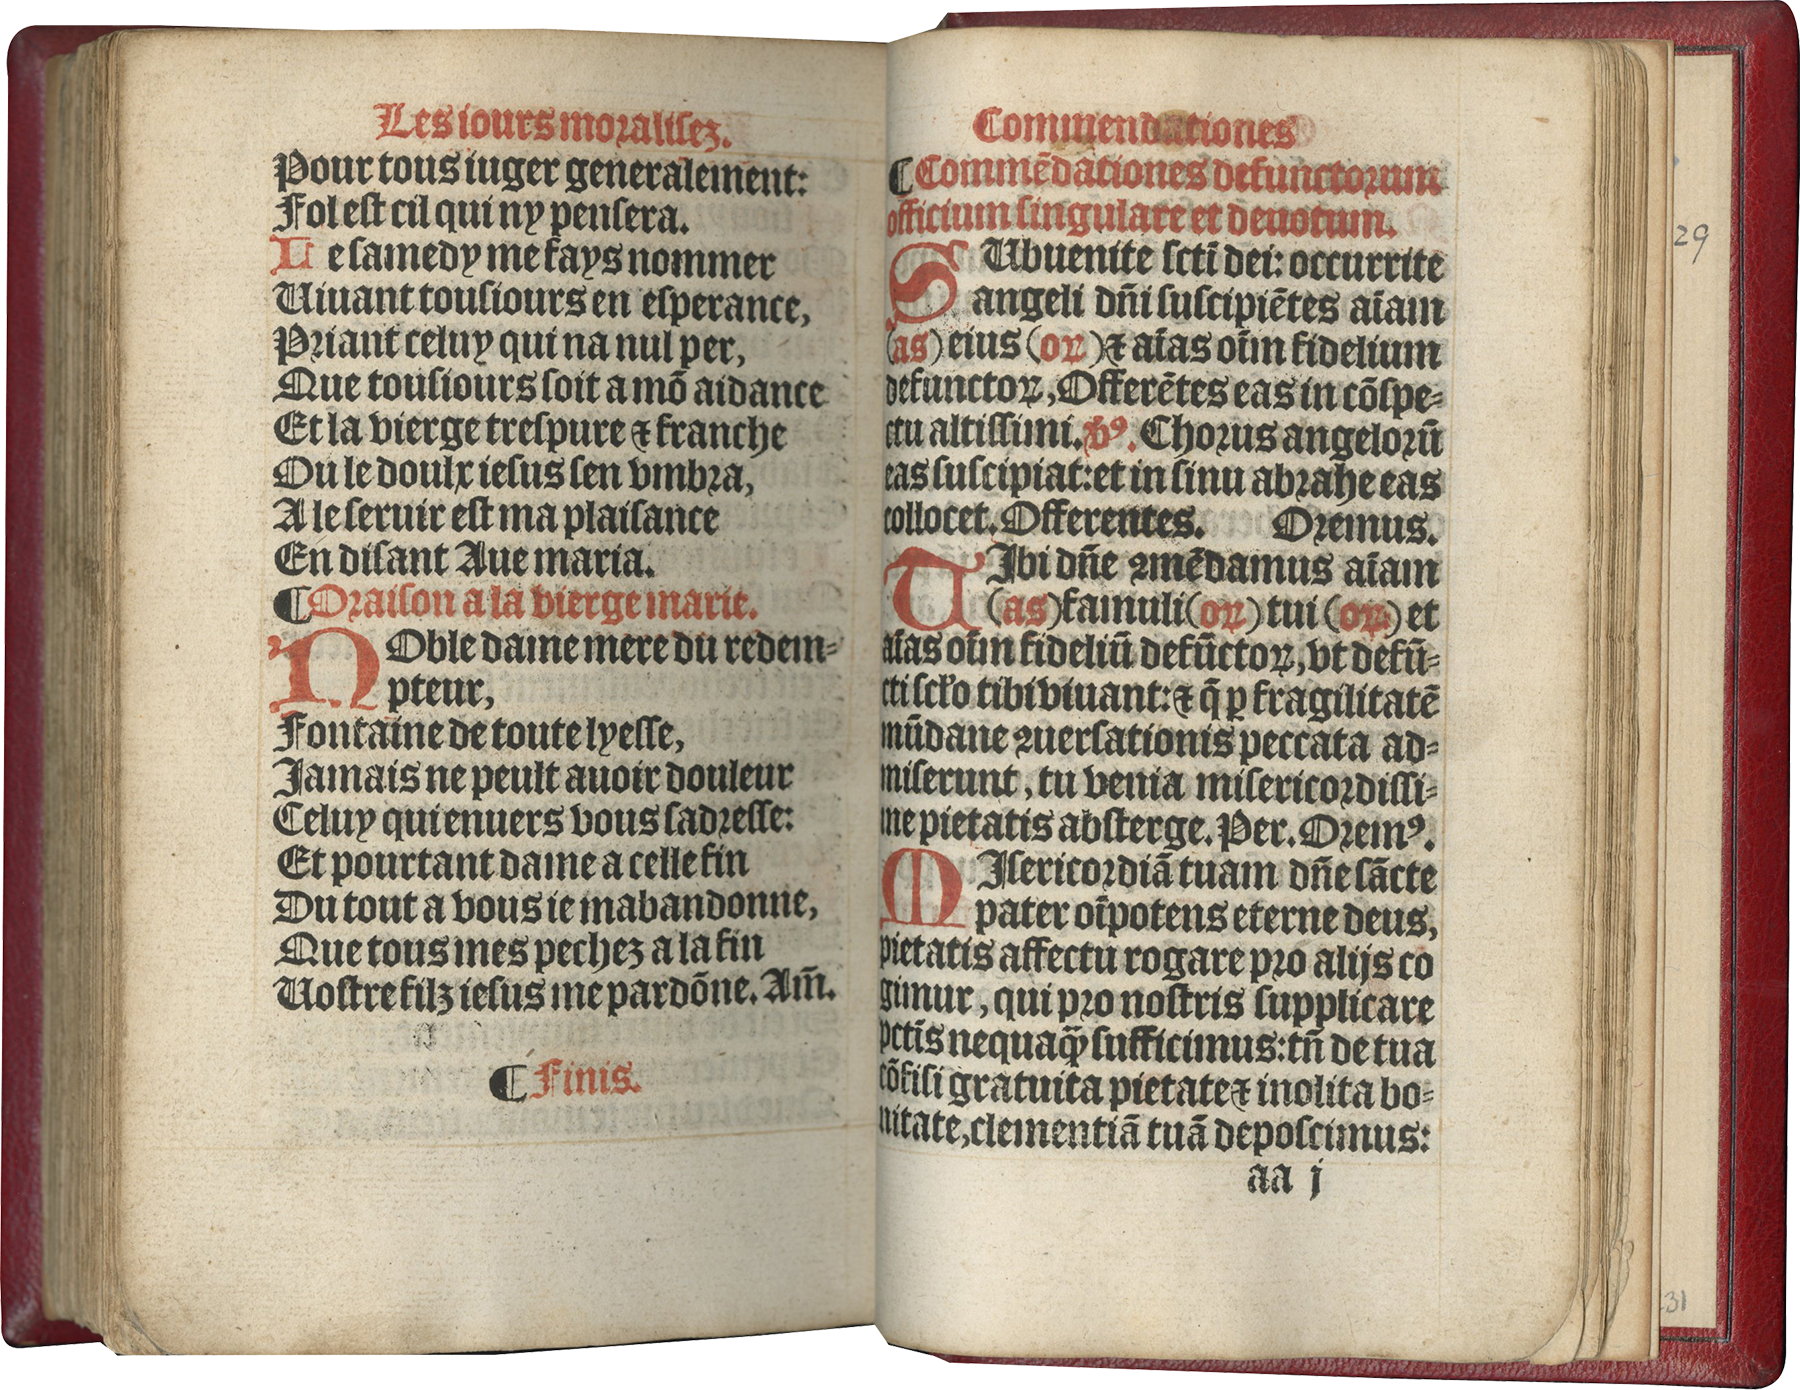 Les iours moralisez.
Pour tous iuger generalement:
Fol est cil qui ny pensera.
Le samedy me fays nommer
Uiuant tousiours en esperance,
Priant celuy qui na nul per,
Que tousiours soit a mõ aidance
Et la vierge trespure ⁊ franche
Ou le doulx iesus sen vmbra,
A le seruir est ma plaisance
En disant Aue maria.
¶ Oraison a la vierge marie.
NOble dame mere du redem-
pteur,
Fontaine de toute lyesse,
Jamais ne peult auoir douleur
Celuy qui enuers vous sadresse:
Et pourtant dame a celle fin
Du tout a vous ie mabandonne,
Que tous mes pechez a la fin
Uostre filz iesus me pardõne. Am̃.
¶ Finis.
Commendationes
¶ Commẽdationes defunctorum
officium singulare et deuotum.
SUbuenite sctĩ dei: occurrite
angeli dñi suscipiẽtes aĩam
(as) eius (oꝝ) ⁊ aĩas oĩm fidelium
defunctoꝝ, Offerẽtes eas in cõspe-
ctu altissimi. v̾ꝰ. Chorus angelorũ
eas suscipiat: et in sinu abrahe eas
collocet. Offerentes. Oremus.
TJbi dñe ꝯmẽdamus aĩam
(as) famuli (oꝝ) tui (oꝝ) et
aĩas oĩm fideliũ defũctoꝝ, vt defũ-
cti sc̃lo tibi viuant: ⁊ q̃ ꝑ fragilitatẽ
mũdane ꝯuersationis peccata ad-
miserunt, tu venia misericordissi-
me pietatis absterge. Per. Oremꝰ.
MJsericordiã tuam dñe sãcte
pater oĩpotens eterne deus,
pietatis affectu rogare pro alijs co
gimur, qui pro nostris supplicare
pctĩs nequaꝙ̃ sufficimus: tñ de tua
cõfisi gratuita pietate ⁊ inolita bo-
nitate, clementiã tuã deposcimus:
aa j
29
31